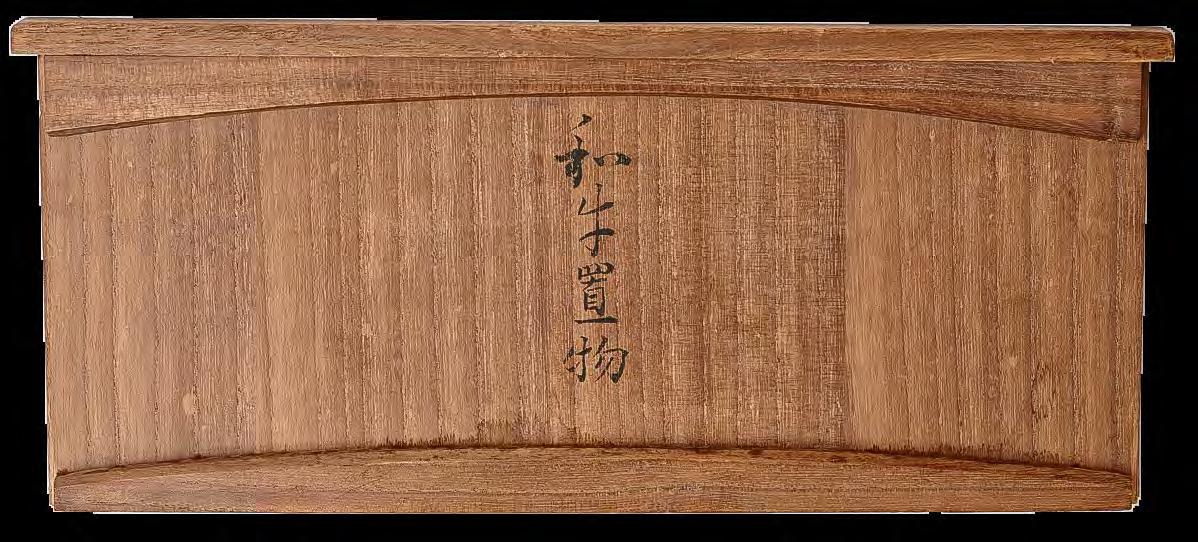 和牛置物